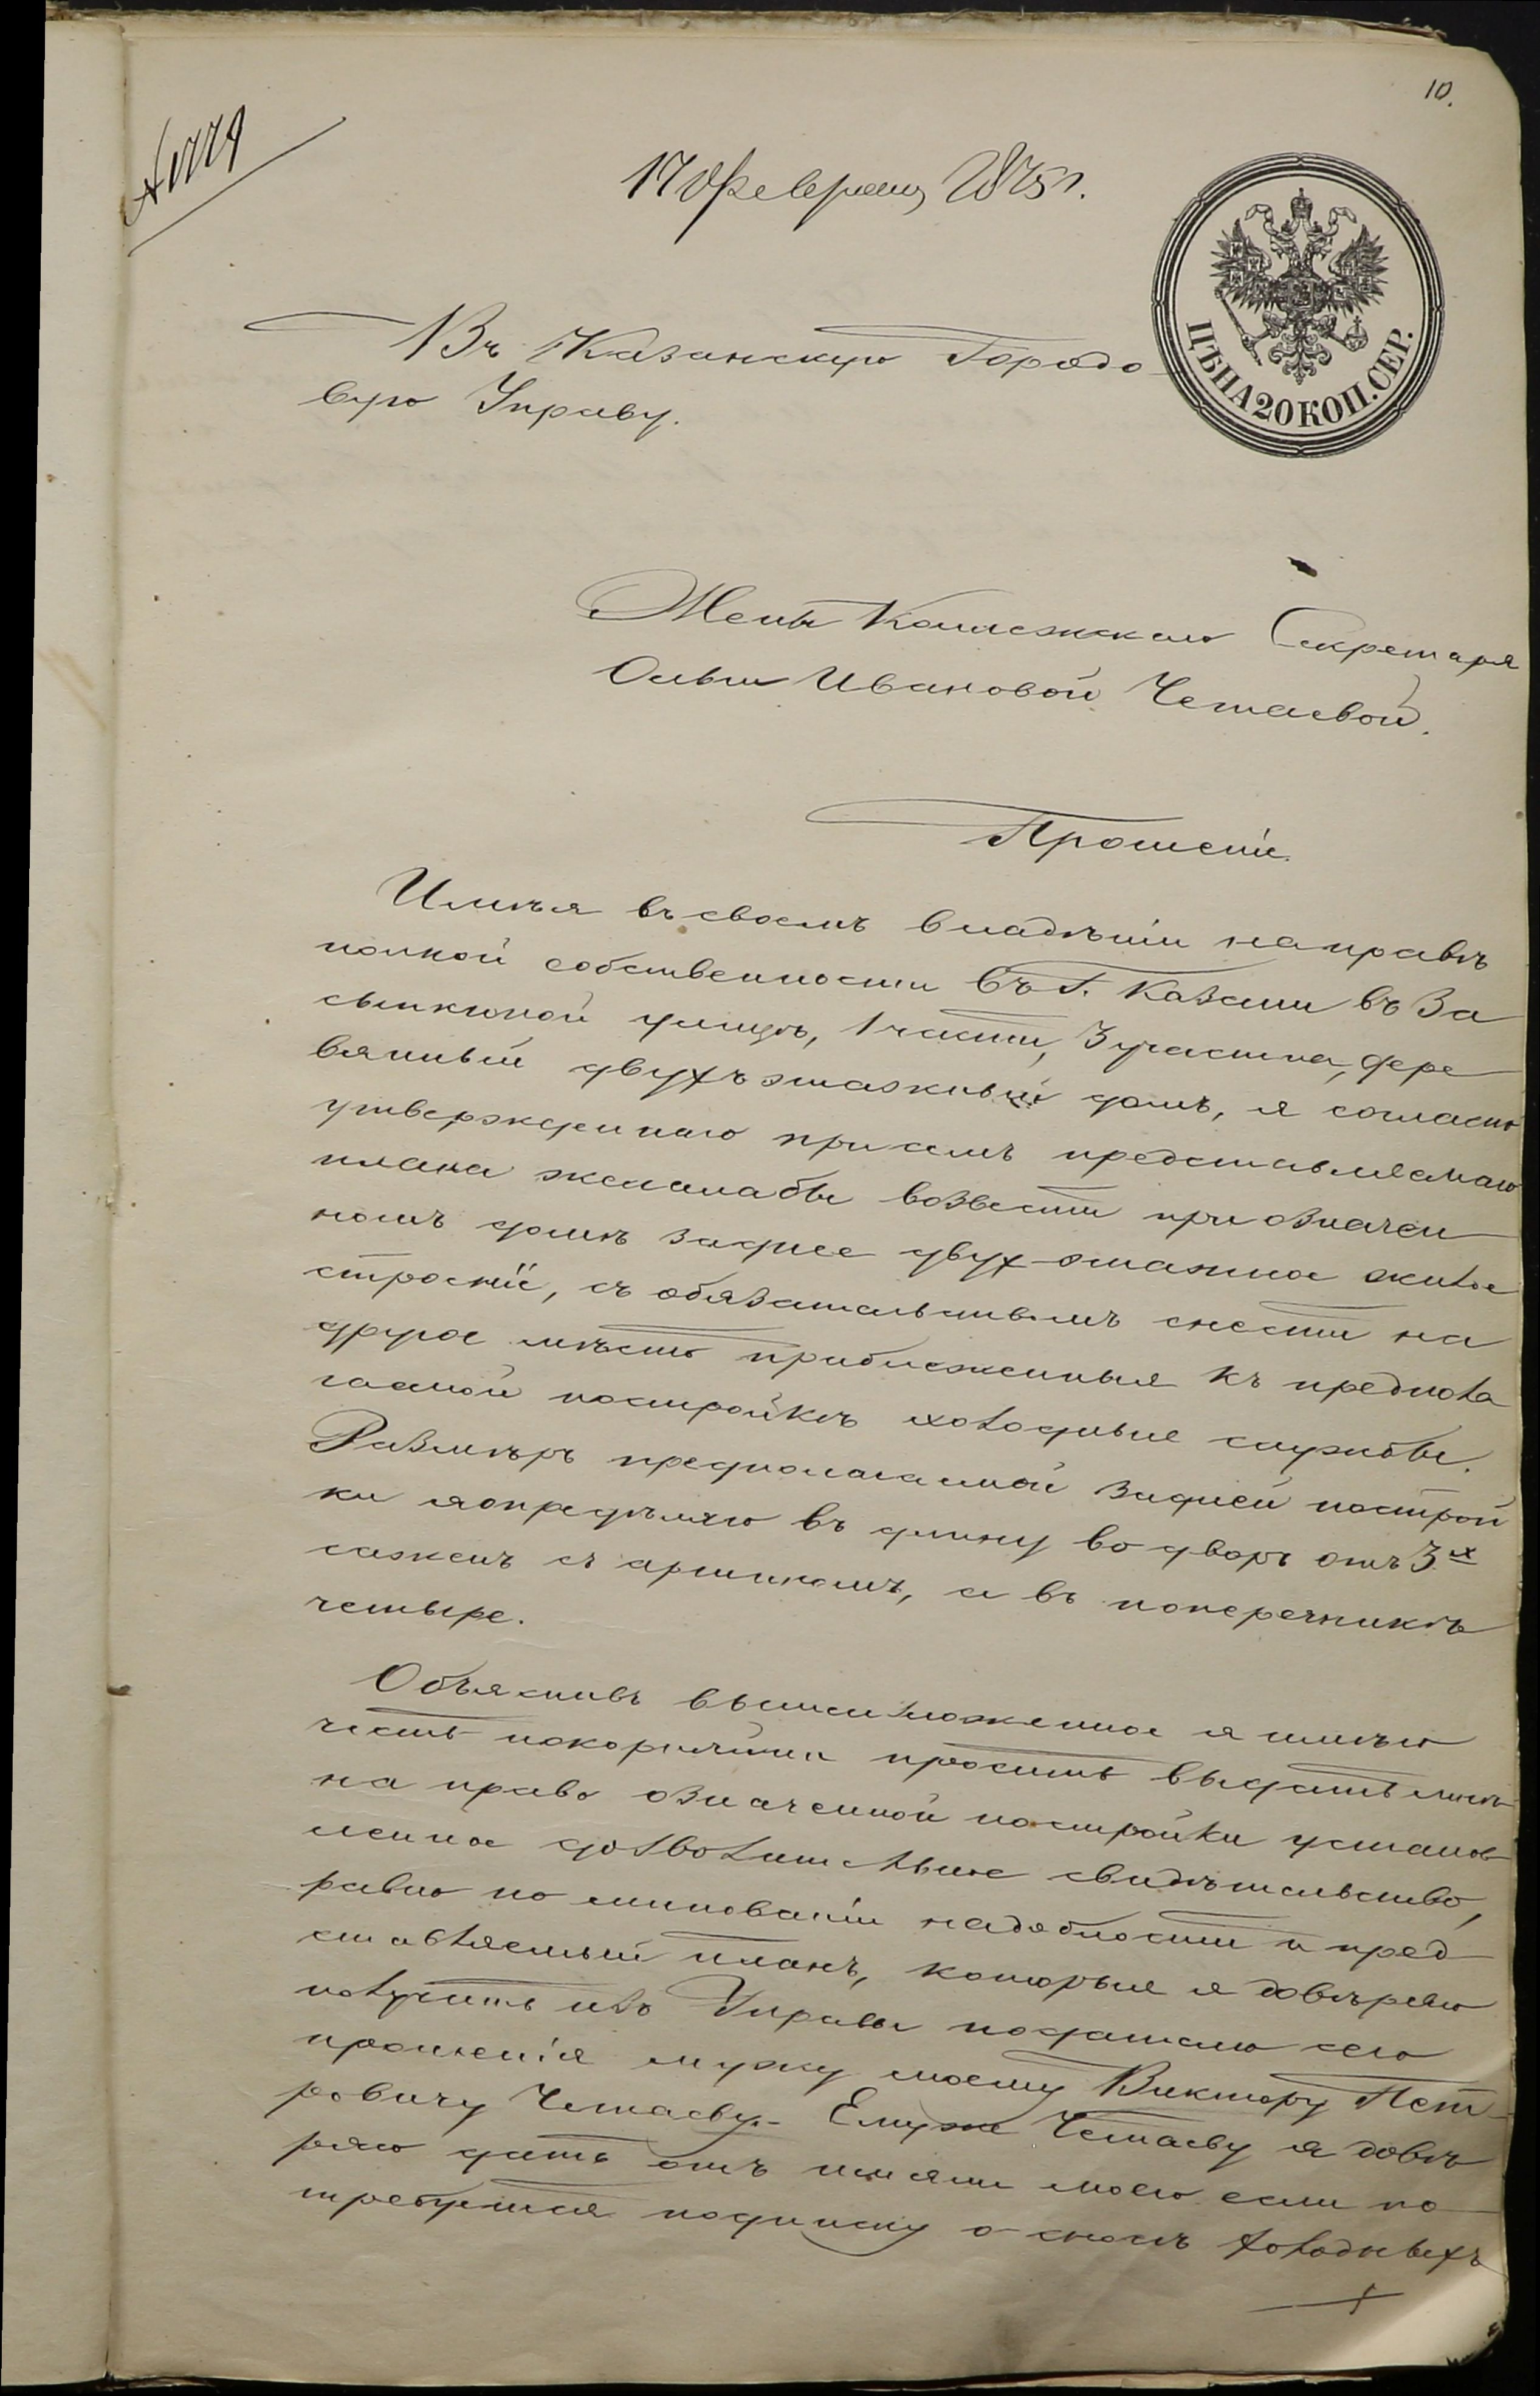 10.
№ 1779
17 Февраля 1875 г.
ЦѢНА 20 КОП. СЕР.
Въ Казанскую Городо
вую Управу.
Жены Коллежскаго Секретаря
Ольги Ивановой Четаевой.
Прошеніе.
Имѣя въ своемъ владѣніи на правѣ
полной собственности въ г. Казани въ За
сыпкиной улицѣ, 1 части, 3 участка, дере
вянный двухъ этажный домъ, я согласно
утвержденнаго при семъ представляемаго
плана желала бы возвести при означен
номъ домѣ заднее двух-этажное жилое
строеніе, съ обязательствомъ снести на
другое мѣсто приближенныя къ предпола
гаемой постройкѣ холодные службы.
Размѣръ предполагаемой задней построй
ки я опредѣляю въ длину во дворъ отъ 3х
сажень съ аршиномъ, а въ поперечникѣ
четыре.
Объяснивъ вышеизложенное я имѣю
честь покорнѣйше просить выдать мнѣ
на право означенной постройки установ
ленное дозволительное свидѣтельство,
равно по минованіи надобности и пред
ставляемый планъ, которые я довѣряю
получить изъ Управы подателю сего
прошенія мужу моему Виктору Пет-
ровичу Четаеву. Ему же Четаеву я довѣ
ряю дать отъ имяни моего если по
требуется подписку о сносѣ холодныхъ